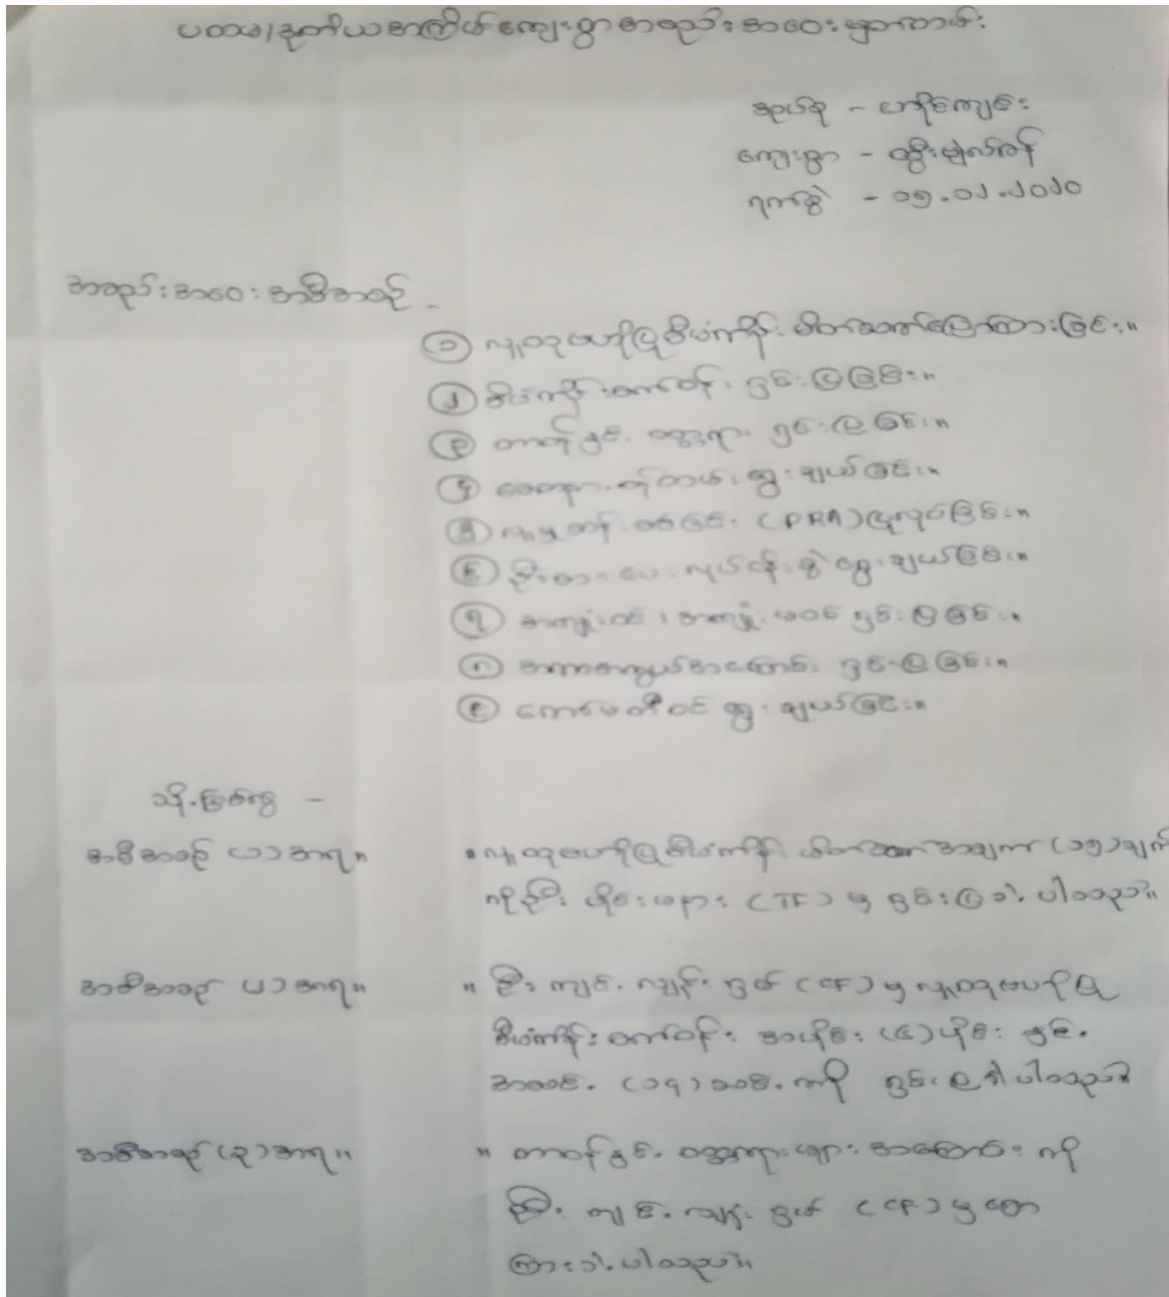 ပထမ/ဒုတိယအကြိမ်ကျေးရွာအစည်းအဝေးမှတ်တမ်း
အုပ်စု - ဟရိုင်ကျောင်း
ကျေးရွာ -
ရက်စွဲ - ၁၅.၀၂.၂၀၂၀
အစည်းအဝေးအစီအစဉ် -
၁ လူထုဗဟိုပြုစီမံကိန်း မိတ်ဆက်ပြောကြားခြင်း။
၂ စီမံကိန်းစက်ဝန်း ရှင်းပြခြင်း။
၃ တာဝန်နှင့် ဝတ္တရား ရှင်းပြခြင်း။
၄ စေတနာ့ဝန်ထမ်း ရွေးချယ်ခြင်း။
၅ လူမှုဆန်းစစ်ခြင်း (PRA) ပြုလုပ်ခြင်း။
၆ ဦးစားပေးလုပ်ငန်းခွဲ ရွေးချယ်ခြင်း။
၇ အကျုံးဝင်၊ အကျုံးမဝင် ရှင်းပြခြင်း။
၈ အကာအကွယ်အကြောင်း ရှင်းပြခြင်း။
၉ ကော်မတီဝင် ရွေးချယ်ခြင်း။
သို့ဖြစ်၍ -
အစီအစဉ် (၁) အရ။ " လူထုဗဟိုပြုစီမံကိန်း မိတ်ဆက်အချက် (၁၅) ချက်
ကို ဦး (TF) မှ ရှင်းပြခဲ့ပါသည်။
အစီအစဉ် (၂) အရ။ " ဦးကျင့်ကျုန်းရှမ် (CF) မှ လူထုဗဟိုပြု
စီမံကိန်းစက်ဝန်း အပိုင်း (၆) ပိုင်း နှင့်
အဆင့် (၁၄) ဆင့် ကို ရှင်းပြခဲ့ပါသည်။
အစီအစဉ် (၃) အရ။ " တာဝန်နှင့် ဝတ္တရားများ အကြောင်းကို
ဦးကျင့်ကျုန်းရှမ် (CF) မှ ပြော
ကြားခဲ့ပါသည်။